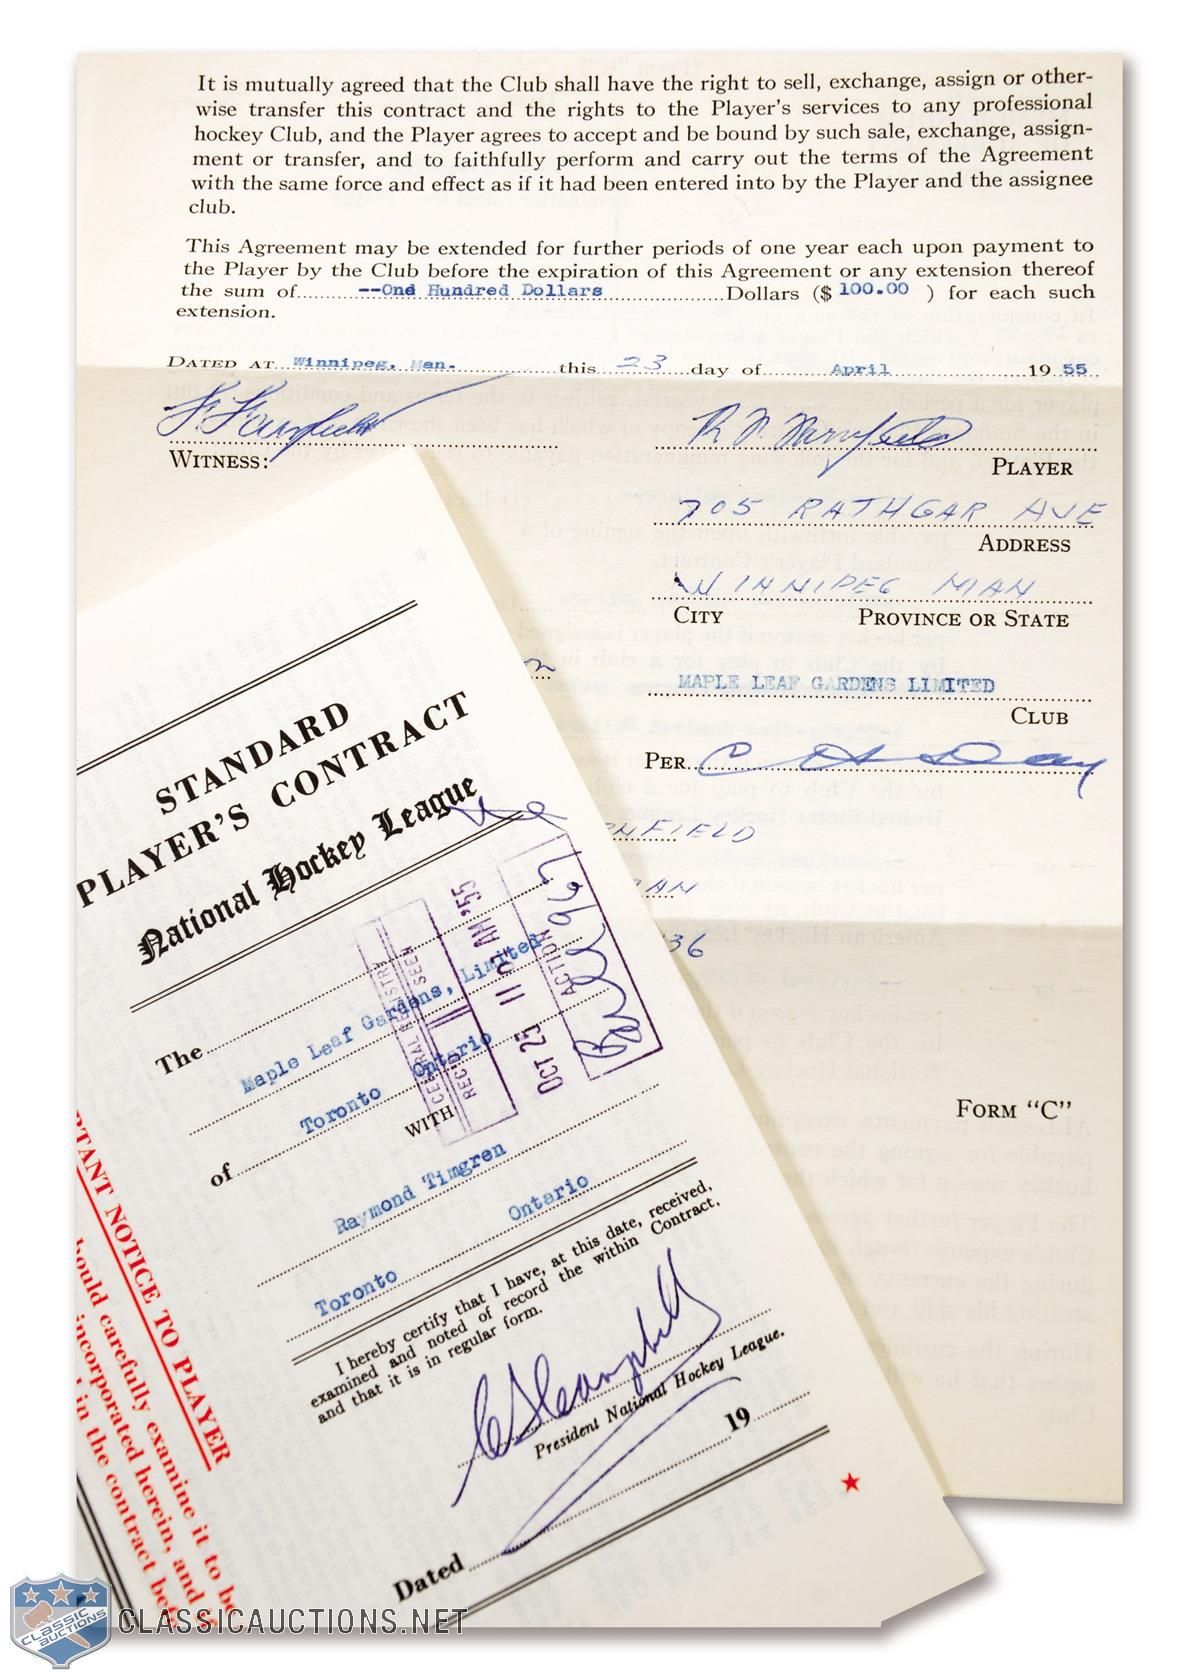 It is mutually agreed that the Club shall have the right to sell, exchange, assign or other-
wise transfer this contract and the rights to the Player's services to any professional
hockey Club, and the Player agrees to accept and be bound by such sale, exchange, assign-
ment or transfer, and to faithfully perform and carry out the terms of the Agreement
with the same force and effect as if it had been entered into by the Player and the assignee
club.
This Agreement may be extended for further periods of one year each upon payment to
the Player by the Club before the expiration of this Agreement or any extension thereof
the sum of --One Hundred Dollars Dollars ($ 100.00 ) for each such
extension.
DATED AT Winnipeg, Man. this 23 day of April 19 55
WITNESS:
PLAYER
705 RATHGAR AVE
ADDRESS
WINNIPEG MAN
CITY PROVINCE OR STATE
MAPLE LEAF GARDENS LIMITED
CLUB
PER C H Day
NFIELD
AN
36
FORM "C"
STANDARD
PLAYER'S CONTRACT
National Hockey League
The Maple Leaf Gardens, Limited
of Toronto Ontario
WITH
Raymond Timgren
Toronto Ontario
CENTRAL REGISTRY
REC'D SEEN
OCT 25 11 AM '55
ACTION
I hereby certify that I have, at this date, received,
examined and noted of record the within Contract,
and that it is in regular form.
C S Campbell
President National Hockey League.
Dated 19
RTANT NOTICE TO PLAYER
hould carefully examine it to be
incorporated herein, and
in the contract
CLASSIC
AUCTIONS
CLASSICAUCTIONS.NET